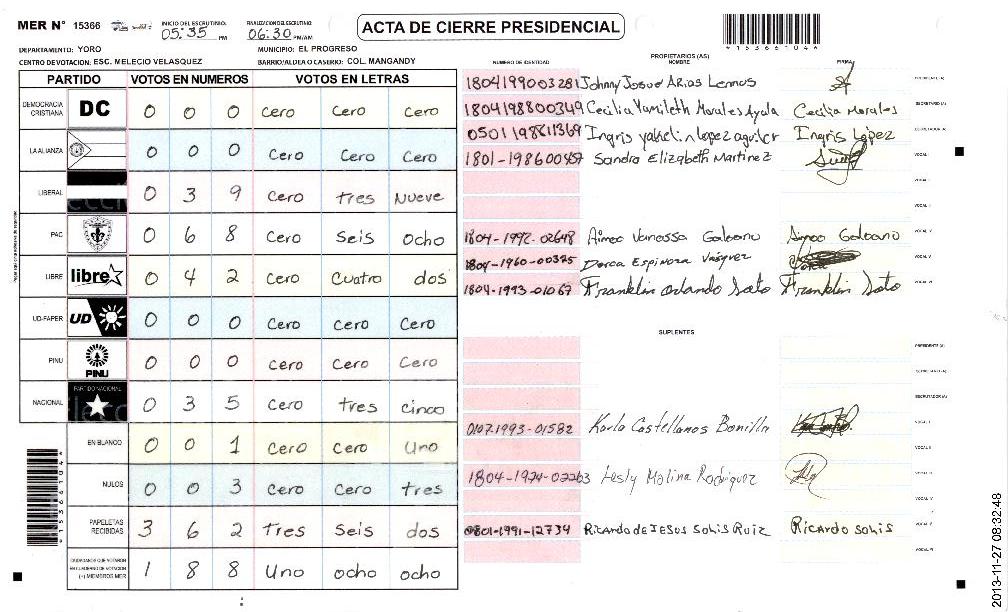 MER N° 15366
INICIO DEL ESCRUTINIO: 05:35 PM
FINALIZACION DEL ESCRUTINIO: 06:30 PM/AM
ACTA DE CIERRE PRESIDENCIAL
*15366104*
DEPARTAMENTO: YORO
MUNICIPIO: EL PROGRESO
CENTRO DE VOTACION: ESC. MELECIO VELASQUEZ
BARRIO/ALDEA O CASERIO: COL. MANGANDY
PARTIDO VOTOS EN NUMEROS VOTOS EN LETRAS
DEMOCRACIA CRISTIANA DC 0 0 0 Cero Cero Cero
LA ALIANZA 0 0 0 Cero Cero Cero
LIBERAL 0 3 9 Cero tres Nueve
PAC 0 6 8 Cero Seis ocho
LIBRE libre 0 4 2 Cero Cuatro dos
UD-FAPER UD 0 0 0 Cero Cero Cero
PINU PINU 0 0 0 Cero Cero Cero
NACIONAL PARTIDO NACIONAL 0 3 5 Cero tres cinco
EN BLANCO 0 0 1 Cero Cero Uno
NULOS 0 0 3 Cero Cero tres
PAPELETAS RECIBIDAS 3 6 2 Tres Seis dos
CIUDADANOS QUE VOTARON EN CUADERNO DE VOTACION (+) MIEMBROS MER 1 8 8 Uno ocho ocho
PROPIETARIOS (AS)
NUMERO DE IDENTIDAD NOMBRE FIRMA
Johnny Josue Arias Lemus PRESIDENTE (A)
1804198800349 Cecilia Yamileth Morales Ayala Cecilia Morales SECRETARIO (A)
0501198811369 Ingris lopez aguiler Ingris López ESCRUTADOR (A)
1801-198600457 Sandra Elizabeth Martinez VOCAL I
VOCAL II
VOCAL III
1804-1992-02648 Aimee Vanessa Galeano Aimee Galeano VOCAL IV
1804-1960-00375 Dorca Espinoza Vasquez VOCAL V
1804-1993-01067 Franklin orlando Soto Franklin Soto VOCAL VI
SUPLENTES
PRESIDENTE (A)
SECRETARIO (A)
ESCRUTADOR (A)
0107-1993-01582 Karla Castellanos Bonilla VOCAL I
VOCAL II
1804-1974-02263 Lesly Molina Rodriguez VOCAL III
VOCAL IV
0801-1991-12734 Ricardo de Jesus Solis Ruiz Ricardo Solis VOCAL V
VOCAL VI
2013-11-27 08:32:48